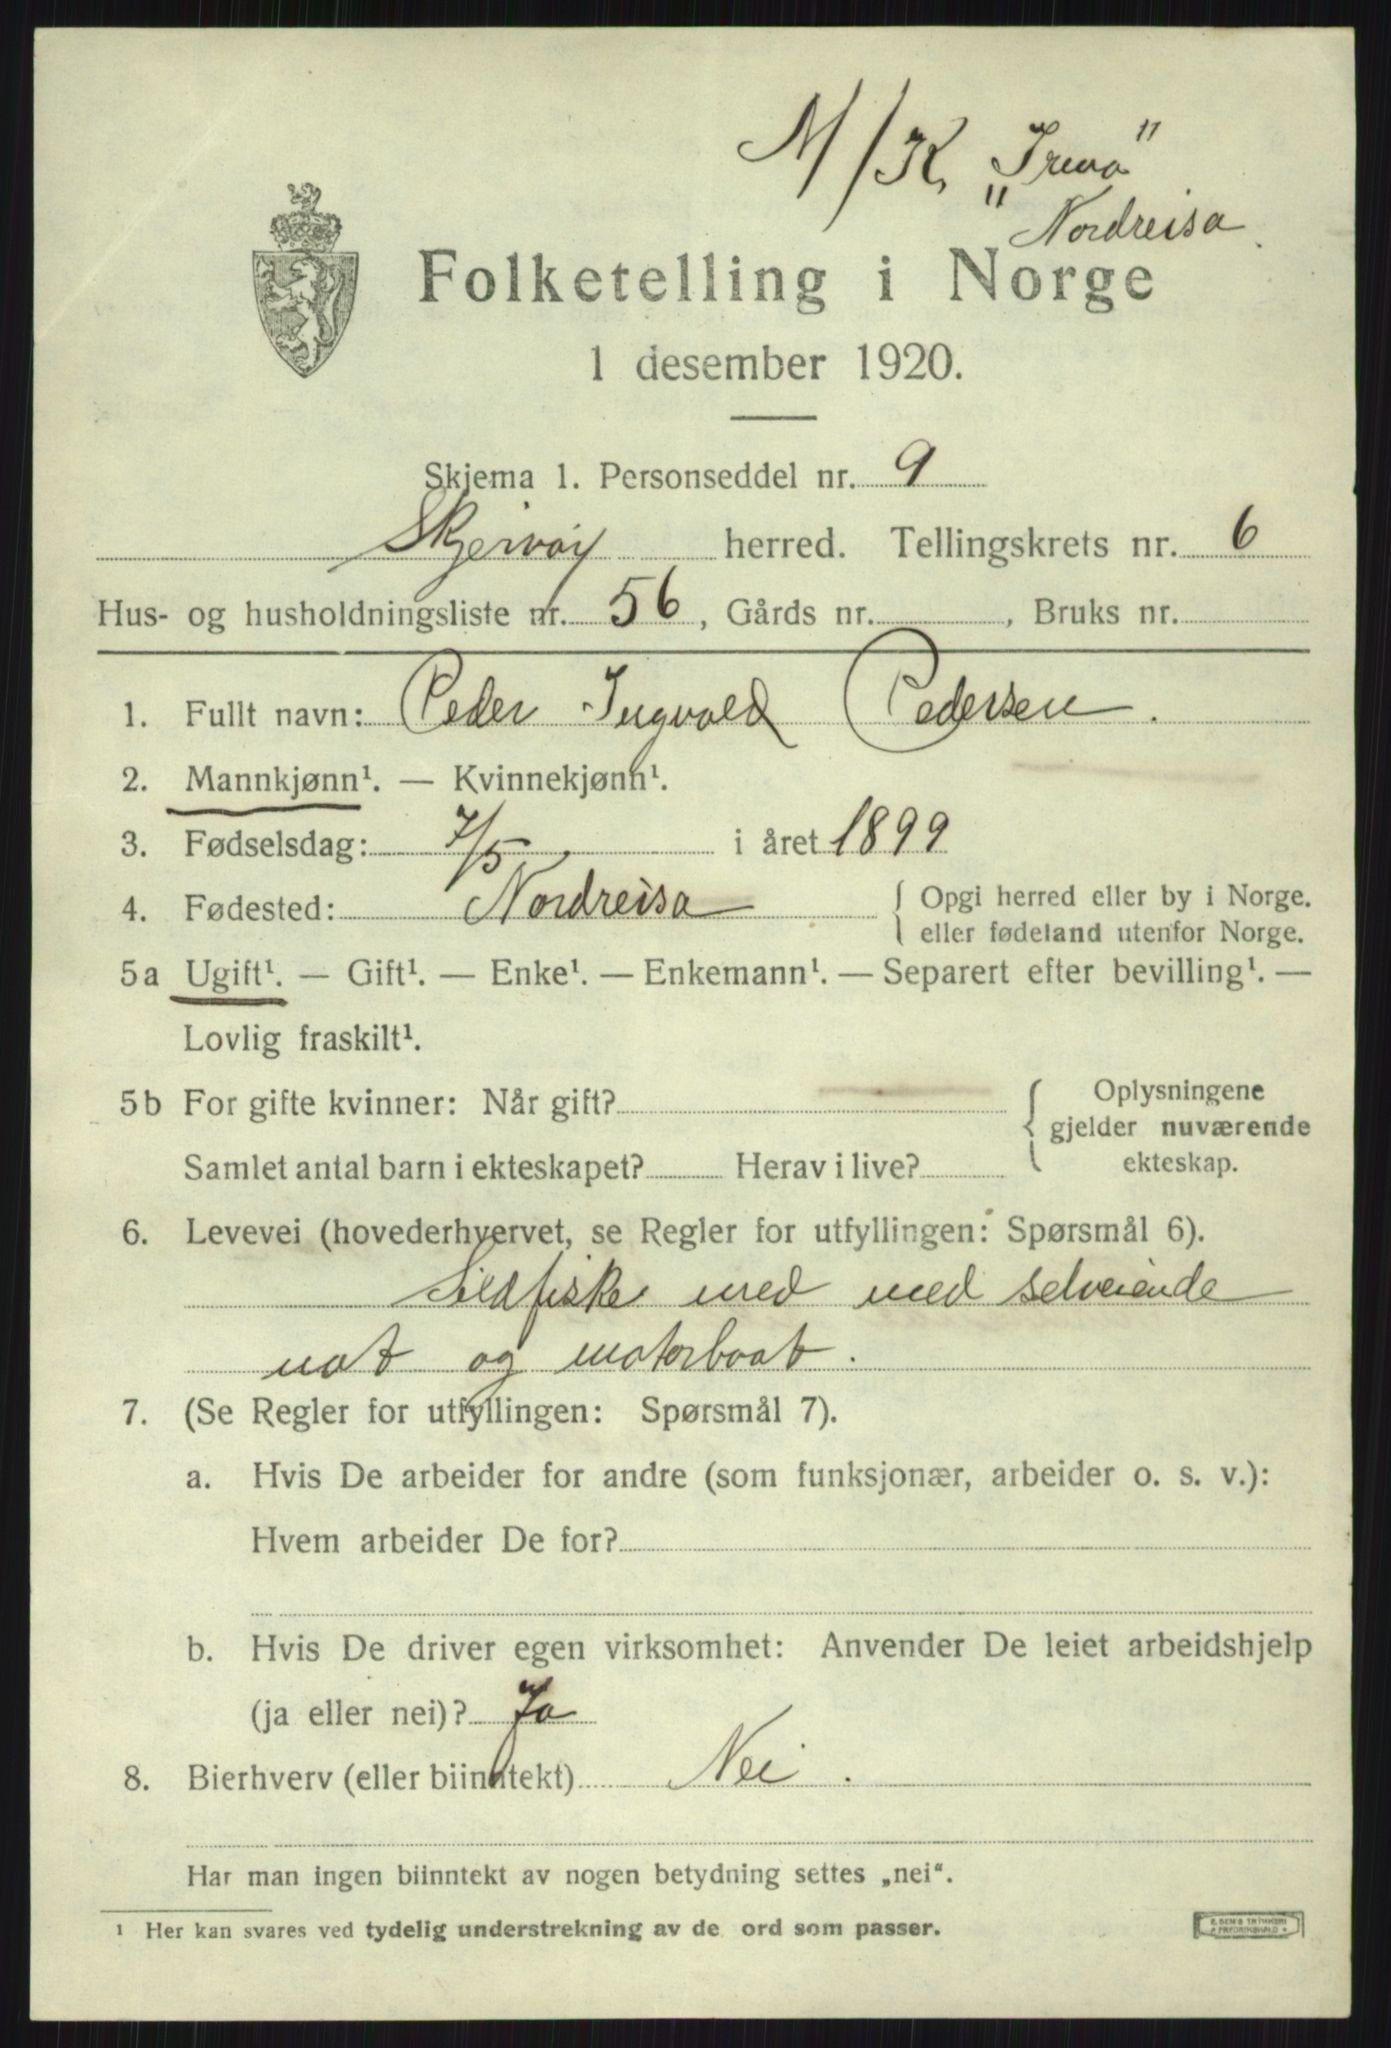 M/K „Trevo"
Nordreisa
Folketelling i Norge
1 desember 1920.
Skjema 1. Personseddel nr. 9
Skjervøy herred. Tellingskrets nr. 6
Hus- og husholdningsliste nr. 56, Gårds nr. , Bruks nr.
1. Fullt navn: Peder Ingvald Pedersen.
2. Mannkjønn¹. — Kvinnekjønn¹.
3. Fødselsdag: 7/5 i året 1899
4. Fødested: Nordreisa { Opgi herred eller by i Norge.
eller fødeland utenfor Norge.
5a Ugift¹. — Gift¹. — Enke¹. — Enkemann¹. — Separert efter bevilling¹. —
Lovlig fraskilt¹.
5b For gifte kvinner: Når gift? { Oplysningene
gjelder nuværende
Samlet antal barn i ekteskapet? Herav i live? ekteskap.
6. Levevei (hovederhvervet, se Regler for utfyllingen: Spørsmål 6).
Sildfiske med med selveiende
not og motorbaat.
7. (Se Regler for utfyllingen: Spørsmål 7).
a. Hvis De arbeider for andre (som funksjonær, arbeider o. s. v.):
Hvem arbeider De for?
b. Hvis De driver egen virksomhet: Anvender De leiet arbeidshjelp
(ja eller nei)? Ja
8. Bierhverv (eller biinntekt) Nei.
Har man ingen biinntekt av nogen betydning settes „nei".
¹ Her kan svares ved tydelig understrekning av de ord som passer.